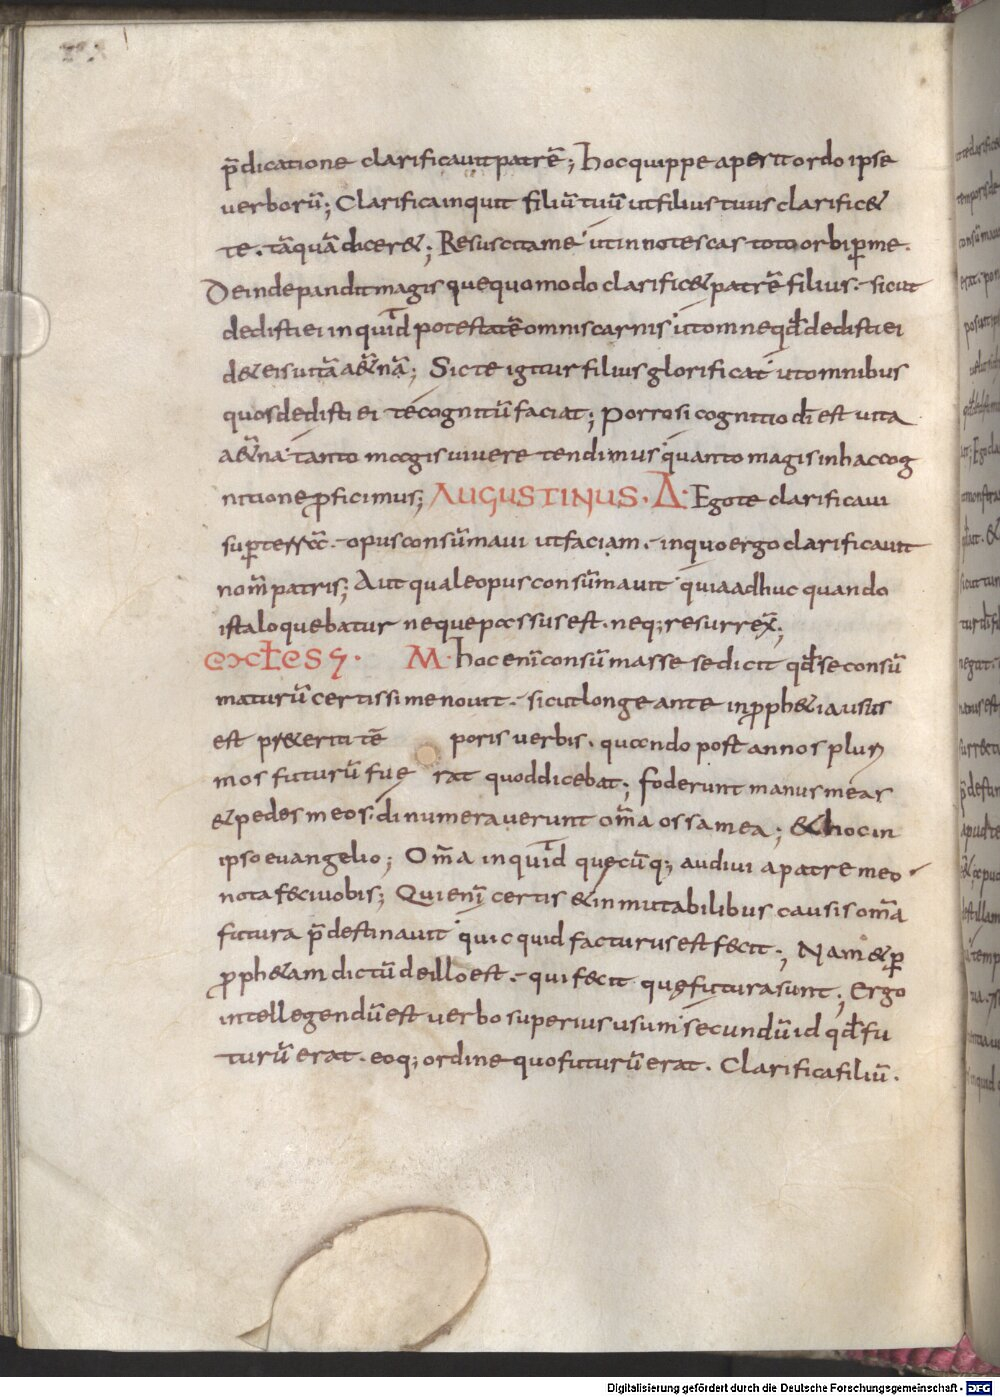 p̄dicatione clarificauit patrē; hoc quippe aperit ordo ipse
uerborū; Clarifica inquit filiū tuū ut filius tuus clarific&
te. tāquā dicer&; Resuscita me ut innotescas toto orbi ꝑ me.
Deinde pandit magis quequomodo clarific& patrē filius. sicut
dedisti ei inquid potestatē omnis carnis ut omne qđ dedisti ei
d& eis uitā a&̄nā; Sic te igitur filius glorificat ut omnibus
quos dedisti ei te cognitū faciat; Porro si cognitio dī est uita
a&̄na tanto magis uiuere tendimus quanto magis in hac cog
nitione ꝓficimus; AUGUSTINUS. Δ. Ego te clarificaui
suꝑ terrā. opus consūmaui ut faciam. in quo ergo clarificauit
nom̄ patris; Aut quale opus consūmauit quia adhuc quando
ista loquebatur neque passus est. neq; resurrex̄;
M. hoc enī consūmasse se dicit qđ se consū
maturū certissime nouit. sicut longe ante in ꝓph&ia usus
est pr&eriti tē poris uerbis. quando post annos plurị
mos futurū fuę rat quod dicebat; foderunt manus meas
& pedes meos. dinumerauerunt om̄a ossa mea; & hoc in
ipso euangelio; Om̄a inquid quęcūq; audiui a patre meo
nota feci uobis; Qui enī certis & inmutabilibus causis om̄a
futura p̄destinauit quicquid facturus est fecit; Nam & ꝑ
ꝓph&am dictū de illo est. qui fecit quę futura sunt; Ergo
intellegendū est uerbo superius usum secundū id qđ fu
turū erat. eoq; ordine quo futurū erat. Clarifica filiū.
Digitalisierung gefördert durch die Deutsche Forschungsgemeinschaft - DFG